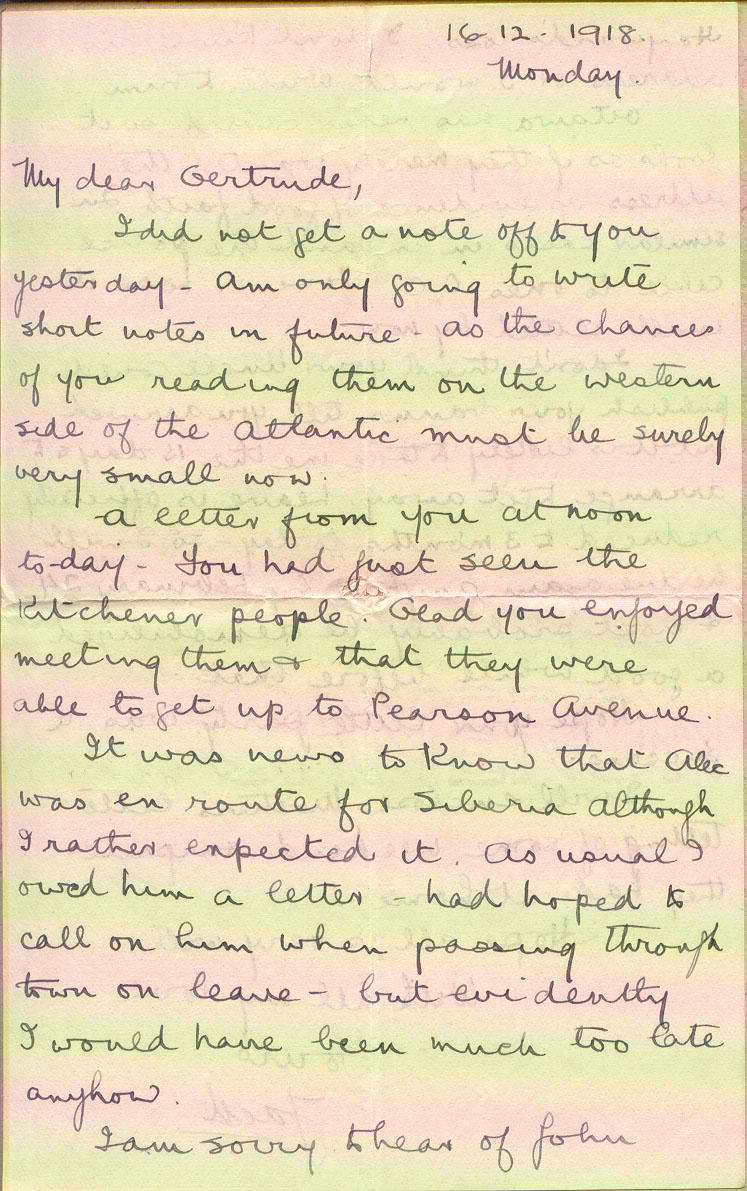 16-12-1918
Monday.
My dear Gertrude,
I did not get a note off to you
yesterday - Am only going to write
short notes in future - as the chances
of you reading them on the western
side of the Atlantic must be surely
very small now.
A letter from you at noon
to-day - You had just seen the
Kitchener people. Glad you enjoyed
meeting them & that they were
able to get up to Pearson Avenue.
It was news to know that Alec
was en route for Siberia although
I rather expected it. As usual I
owed him a letter - had hoped to
call on him when passing through
town on leave - but evidently
I would have been much too late
anyhow.
I am sorry to hear of John